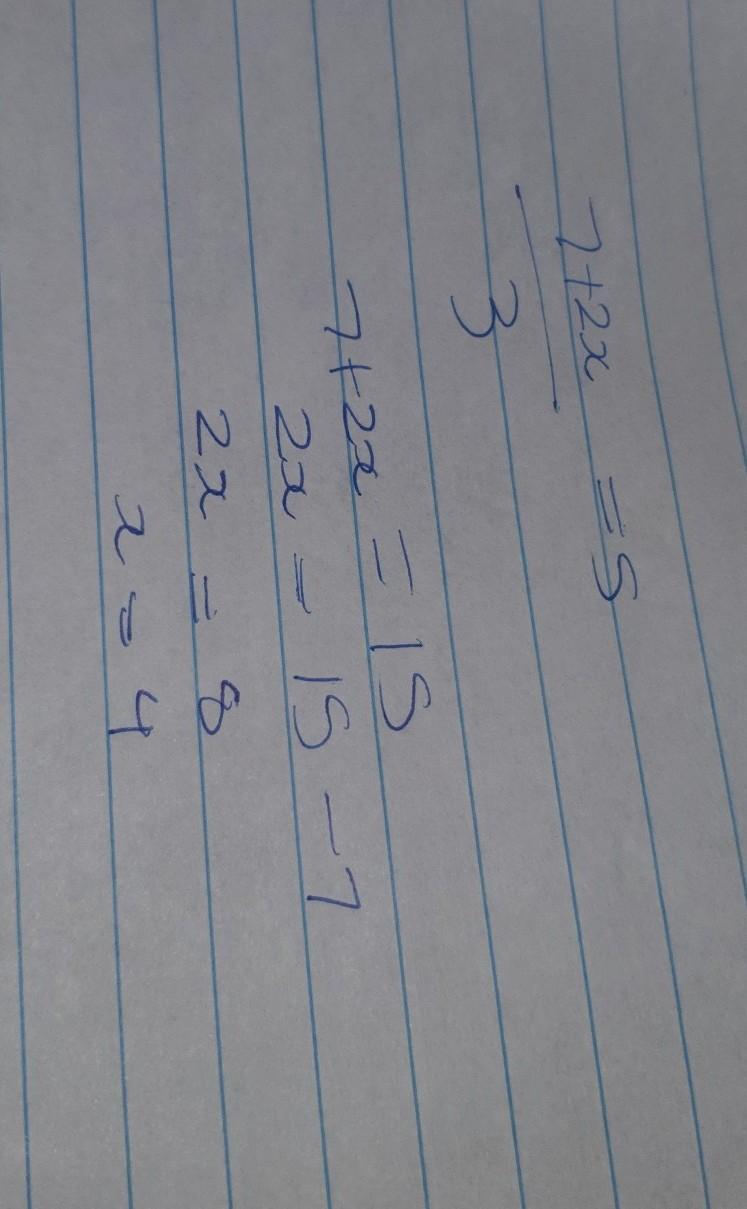 7+2x = 5
3
7+2x = 15
2x = 15 - 7
2x = 8
x = 4